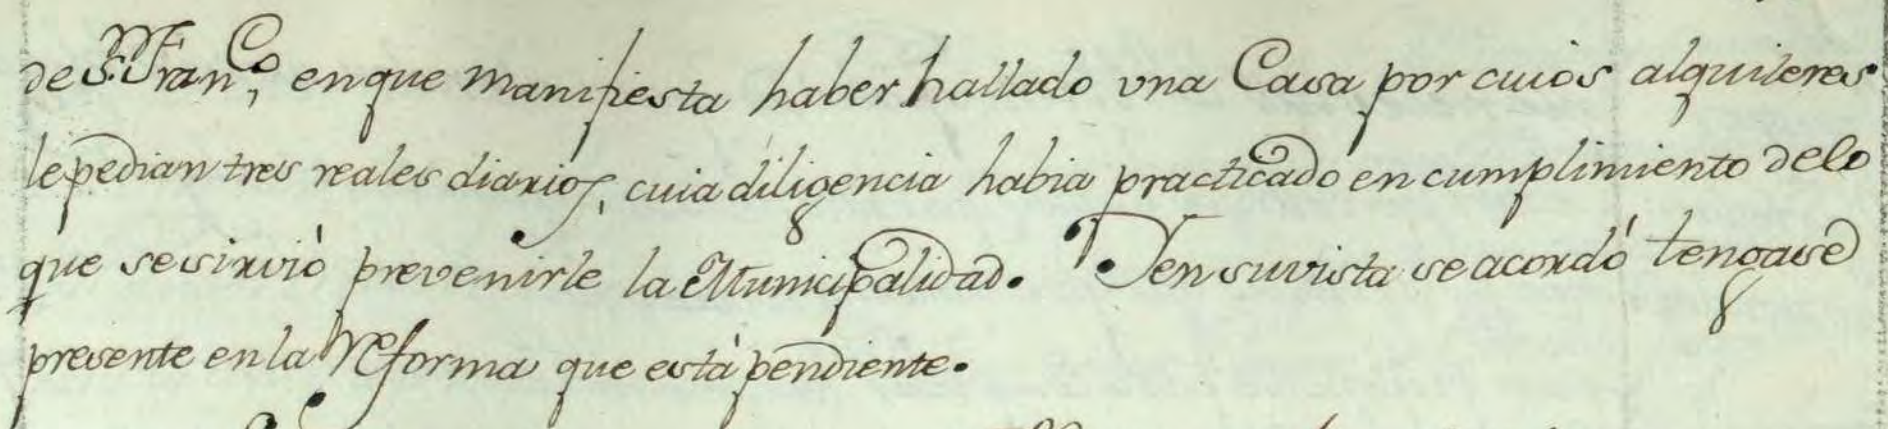 de S.n Fran.co, en que manifiesta haber hallado una Casa por cuios alquileres
le pedian tres reales diarios, cuia diligencia habia practicado en cumplimiento de lo
que se sirviò prevenirle la Municipalidad. Y en su vista se acordó tengase
presente en la Reforma que està pendiente.